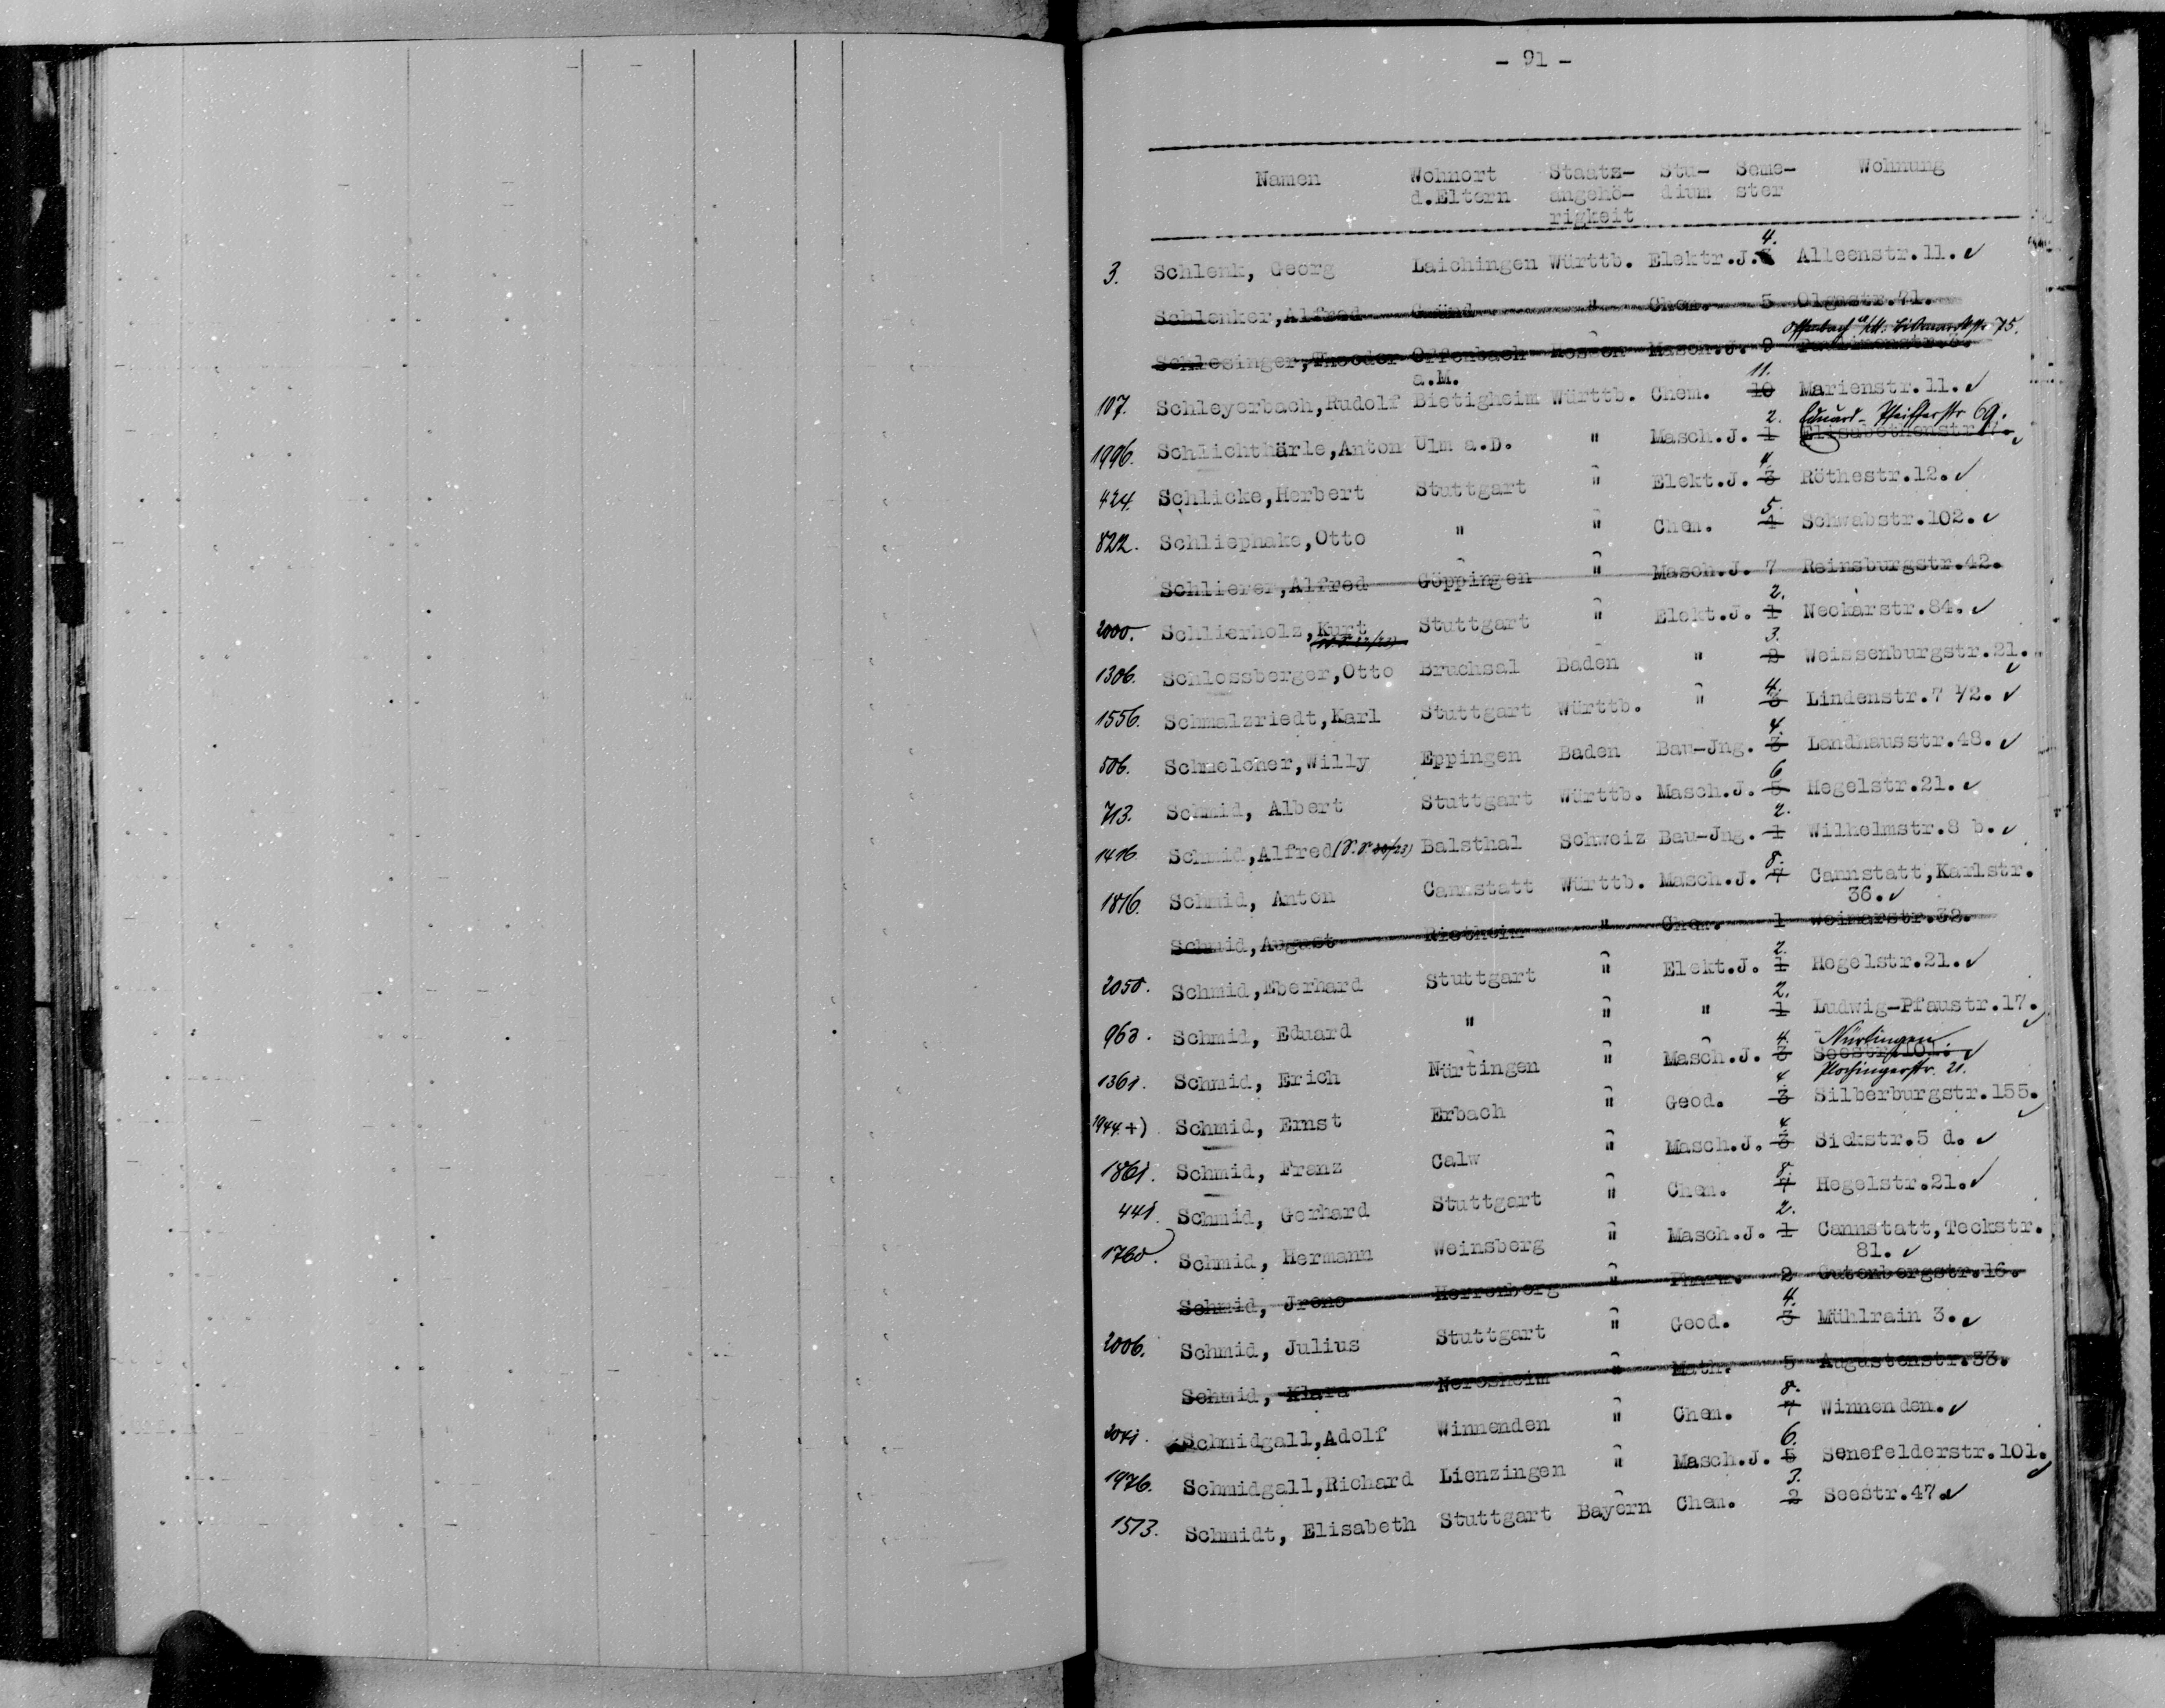 - 91 -
Namen Wohnort d.Eltern Staats-angehö-rigkeit Stu-dium Seme-ster Wohnung
3. Schlenk, Georg Laichingen Württb. Elektr.J. 4. Alleenstr.11. ✓
Schlenker,Alfred Gmünd " Chem. 5 Olgastr.71.
Offenbach a/M. Bismarckstr. 75.
Schlesinger,Theodor Offenbach a.M. Hessen Masch.J. 9
107. Schleyerbach,Rudolf Bietigheim Württb. Chem. 10 11. Marienstr.11. ✓
Eduard-Pfeifferstr 69.
1996. Schlichthärle,Anton Ulm a.D. " Masch.J. 1 2. Elisabethenstr. ✓
424. Schlicke,Herbert Stuttgart " Elekt.J. 3 4. Röthestr.12. ✓
822. Schliephake,Otto " " Chem. 4 5. Schwabstr.102. ✓
Schlierer,Alfred Göppingen " Masch.J. 7 Reinsburgstr.42.
2000. Schlierholz,Kurt Stuttgart " Elekt.J. 1 2. Neckarstr.84. ✓
1306. Schlossberger,Otto Bruchsal Baden " 2 3. Weissenburgstr.21. ✓
1556. Schmalzriedt,Karl Stuttgart Württb. " 3 4. Lindenstr.7 1/2. ✓
506. Schmelcher,Willy Eppingen Baden Bau-Jng. 3 4. Landhausstr.48. ✓
713. Schmid, Albert Stuttgart Württb. Masch.J. 5 6 Hegelstr.21. ✓
1416. Schmid,Alfred Balsthal Schweiz Bau-Jng. 1 2. Wilhelmstr.8 b. ✓
1816. Schmid, Anton Cannstatt Württb. Masch.J. 7 8. Cannstatt,Karlstr.
36. ✓
Schmid,August Rietheim " Chem. 1 Weimarstr.32.
2050. Schmid,Eberhard Stuttgart " Elekt.J. 1 2. Hegelstr.21. ✓
963. Schmid, Eduard " " " 1 2. Ludwig-Pfaustr.17. ✓
Nürtingen
1361. Schmid, Erich Nürtingen " Masch.J. 3 4. Seestr.101. ✓
Plochingerstr. 21.
1944.+) Schmid, Ernst Erbach " Geod. 3 4. Silberburgstr.155. ✓
1861. Schmid, Franz Calw " Masch.J. 3 4. Sickstr.5 d. ✓
441. Schmid, Gerhard Stuttgart " Chem. 7 8. Hegelstr.21. ✓
1760. Schmid, Hermann Weinsberg " Masch.J. 1 2. Cannstatt,Teckstr.
81. ✓
Schmid, Jrene Herrenberg " Pharm. 2 Gutenbergstr.16.
2006. Schmid, Julius Stuttgart " Geod. 3 4. Mühlrain 3. ✓
Schmid, Klara Neresheim " Math. 5 Augustenstr.33.
2041. Schmidgall,Adolf Winnenden " Chem. 7 8. Winnenden. ✓
1976. Schmidgall,Richard Lienzingen " Masch.J. 5 6. Senefelderstr.101. ✓
1573. Schmidt, Elisabeth Stuttgart Bayern Chem. 2 3. Seestr.47. ✓